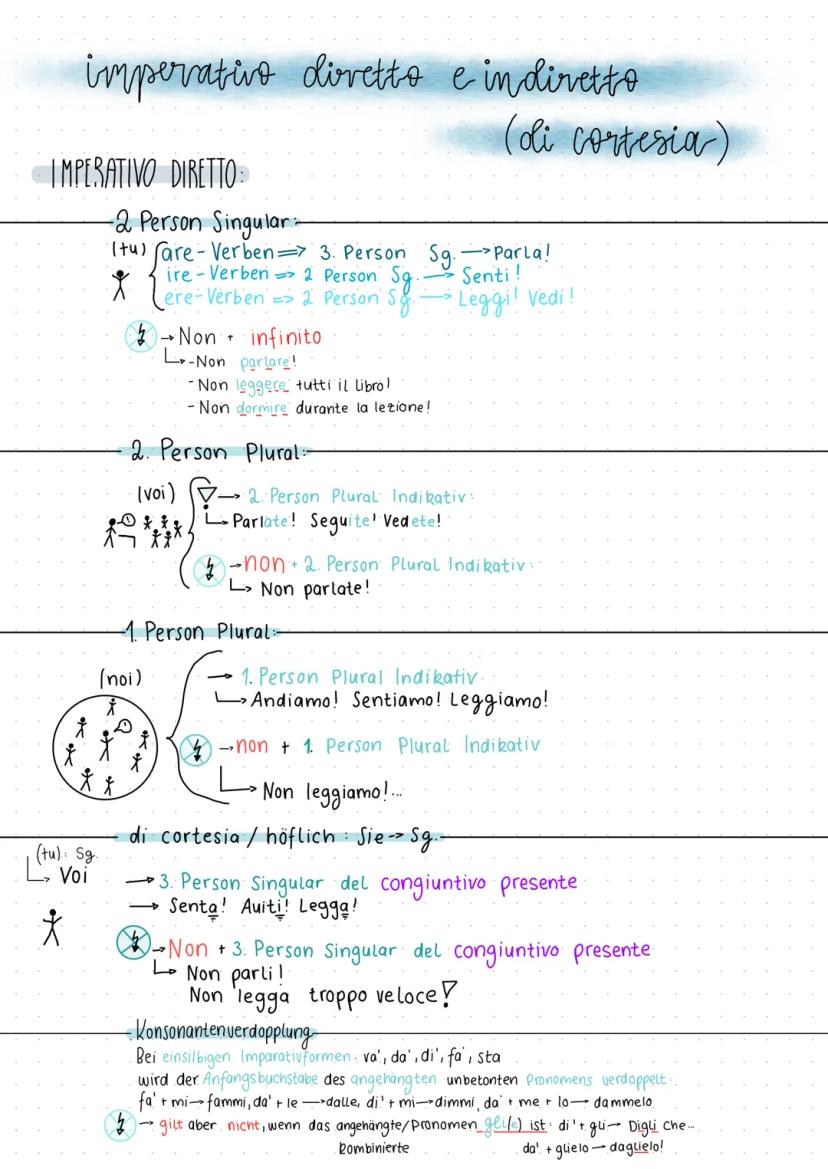 imperativo diretto e indiretto
(di cortesia)
IMPERATIVO DIRETTO:
2 Person Singular:
(tu) are-Verben => 3. Person Sg. → Parla!
ire-Verben => 2 Person Sg. → Senti!
ere-Verben => 2 Person Sg. → Leggi! Vedi!
→ Non + infinito
→ - Non parlare!
- Non leggere tutti il libro!
- Non dormire durante la lezione!
2. Person Plural:
(voi) → 2. Person Plural Indikativ:
→ Parlate! Seguite! Vedete!
→ non + 2. Person Plural Indikativ:
→ Non parlate!
1. Person Plural:
(noi) → 1. Person Plural Indikativ.
→ Andiamo! Sentiamo! Leggiamo!
→ non + 1. Person Plural Indikativ
→ Non leggiamo!...
di cortesia / höflich : Sie → Sg.
(tu): Sg.
→ Voi
→ 3. Person Singular del congiuntivo presente
→ Senta! Auiti! Legga!
→ Non + 3. Person Singular del congiuntivo presente
→ Non parli!
Non legga troppo veloce!
Konsonantenverdopplung
Bei einsilbigen Imparativformen: va', da', di', fa', sta
wird der Anfangsbuchstabe des angehängten unbetonten Pronomens verdoppelt:
fa' + mi → fammi, da' + le → dalle, di' + mi → dimmi, da' + me + lo → dammelo
→ gilt aber nicht, wenn das angehängte/Pronomen gli(e) ist: di' + gli → Digli che...
kombinierte da' + glielo → daglielo!